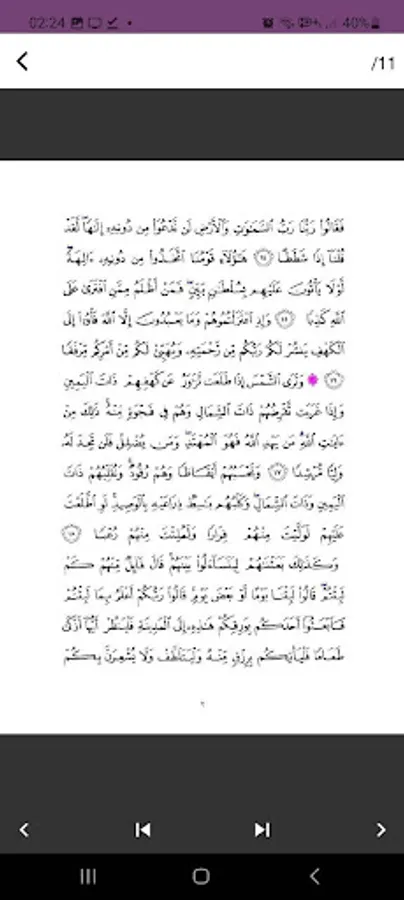 02:24
40%
/11
فَقَالُوا۟ رَبُّنَا رَبُّ ٱلسَّمَٰوَٰتِ وَٱلْأَرْضِ لَن نَّدْعُوَا۟ مِن دُونِهِۦٓ إِلَٰهًا ۖ لَّقَدْ
قُلْنَآ إِذًا شَطَطًا ١٤ هَٰٓؤُلَآءِ قَوْمُنَا ٱتَّخَذُوا۟ مِن دُونِهِۦٓ ءَالِهَةً ۖ
لَّوْلَا يَأْتُونَ عَلَيْهِم بِسُلْطَٰنٍۭ بَيِّنٍ ۖ فَمَنْ أَظْلَمُ مِمَّنِ ٱفْتَرَىٰ عَلَى
ٱللَّهِ كَذِبًا ١٥ وَإِذِ ٱعْتَزَلْتُمُوهُمْ وَمَا يَعْبُدُونَ إِلَّا ٱللَّهَ فَأْوُۥٓا۟ إِلَى
ٱلْكَهْفِ يَنشُرْ لَكُمْ رَبُّكُم مِّن رَّحْمَتِهِۦ وَيُهَيِّئْ لَكُم مِّنْ أَمْرِكُم مِّرْفَقًا
١٦ وَتَرَى ٱلشَّمْسَ إِذَا طَلَعَت تَّزَٰوَرُ عَن كَهْفِهِمْ ذَاتَ ٱلْيَمِينِ
وَإِذَا غَرَبَت تَّقْرِضُهُمْ ذَاتَ ٱلشِّمَالِ وَهُمْ فِى فَجْوَةٍ مِّنْهُ ۚ ذَٰلِكَ مِنْ
ءَايَٰتِ ٱللَّهِ ۗ مَن يَهْدِ ٱللَّهُ فَهُوَ ٱلْمُهْتَدِ ۖ وَمَن يُضْلِلْ فَلَن تَجِدَ لَهُۥ
وَلِيًّا مُّرْشِدًا ١٧ وَتَحْسَبُهُمْ أَيْقَاظًا وَهُمْ رُقُودٌ ۚ وَنُقَلِّبُهُمْ ذَاتَ
ٱلْيَمِينِ وَذَاتَ ٱلشِّمَالِ ۖ وَكَلْبُهُم بَٰسِطٌ ذِرَاعَيْهِ بِٱلْوَصِيدِ ۚ لَوِ ٱطَّلَعْتَ
عَلَيْهِمْ لَوَلَّيْتَ مِنْهُمْ فِرَارًا وَلَمُلِئْتَ مِنْهُمْ رُعْبًا ١٨
وَكَذَٰلِكَ بَعَثْنَٰهُمْ لِيَتَسَآءَلُوا۟ بَيْنَهُمْ ۚ قَالَ قَآئِلٌ مِّنْهُمْ كَمْ
لَبِثْتُمْ ۖ قَالُوا۟ لَبِثْنَا يَوْمًا أَوْ بَعْضَ يَوْمٍ ۚ قَالُوا۟ رَبُّكُمْ أَعْلَمُ بِمَا لَبِثْتُمْ
فَٱبْعَثُوٓا۟ أَحَدَكُم بِوَرِقِكُمْ هَٰذِهِۦٓ إِلَى ٱلْمَدِينَةِ فَلْيَنظُرْ أَيُّهَآ أَزْكَىٰ
طَعَامًا فَلْيَأْتِكُم بِرِزْقٍ مِّنْهُ وَلْيَتَلَطَّفْ وَلَا يُشْعِرَنَّ بِكُمْ
٢